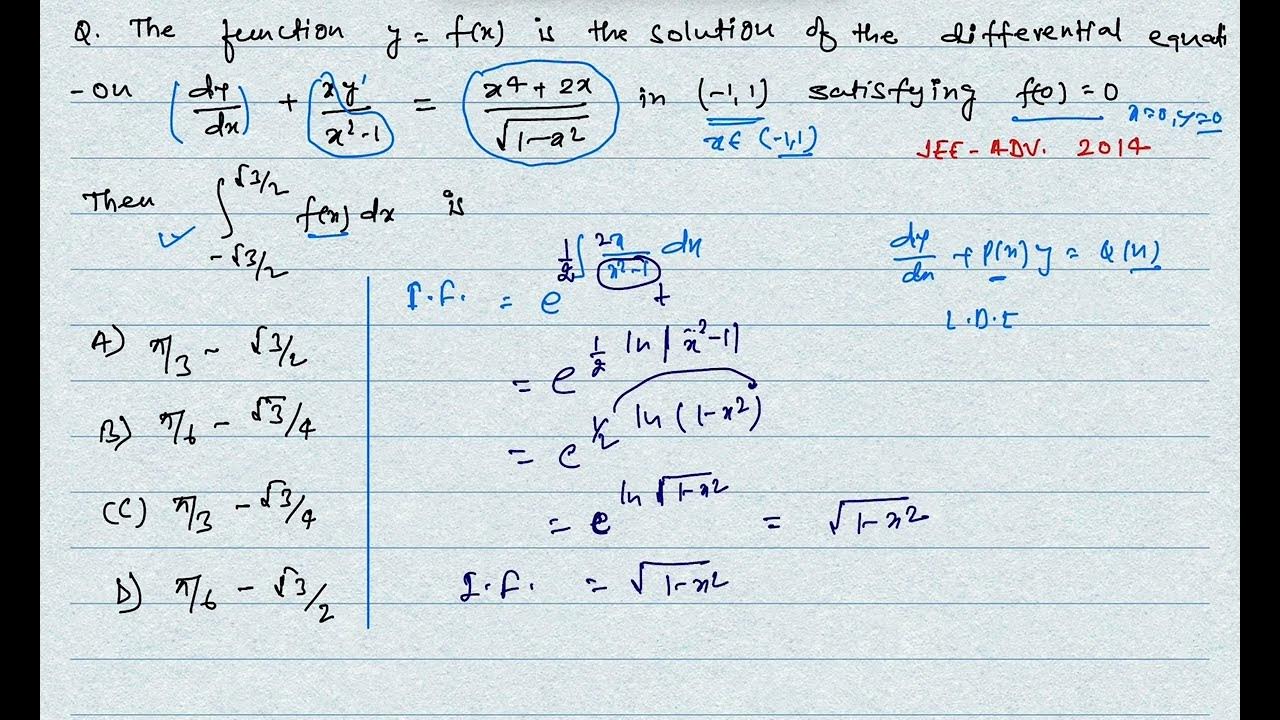 Q. The function y = f(x) is the solution of the differential equati
-on (dy/dx) + xy/x²-1 = x⁴ + 2x/√1-x² in (-1,1) satisfying f(0) = 0
x ∈ (-1,1)
x=0, y=0
JEE - ADV. 2014
Then ∫_{-√3/2}^{√3/2} f(x) dx is
A) π/3 - √3/2
B) π/6 - √3/4
(C) π/3 - √3/4
D) π/6 - √3/2
dy/dx + P(x) y = Q(x)
L.D.E
I.F. = e^{1/2 ∫ 2x/x²-1 dx}
t
= e^{1/2 ln|x²-1|}
= e^{1/2 ln(1-x²)}
= e^{ln √1-x²} = √1-x²
I.F. = √1-x²